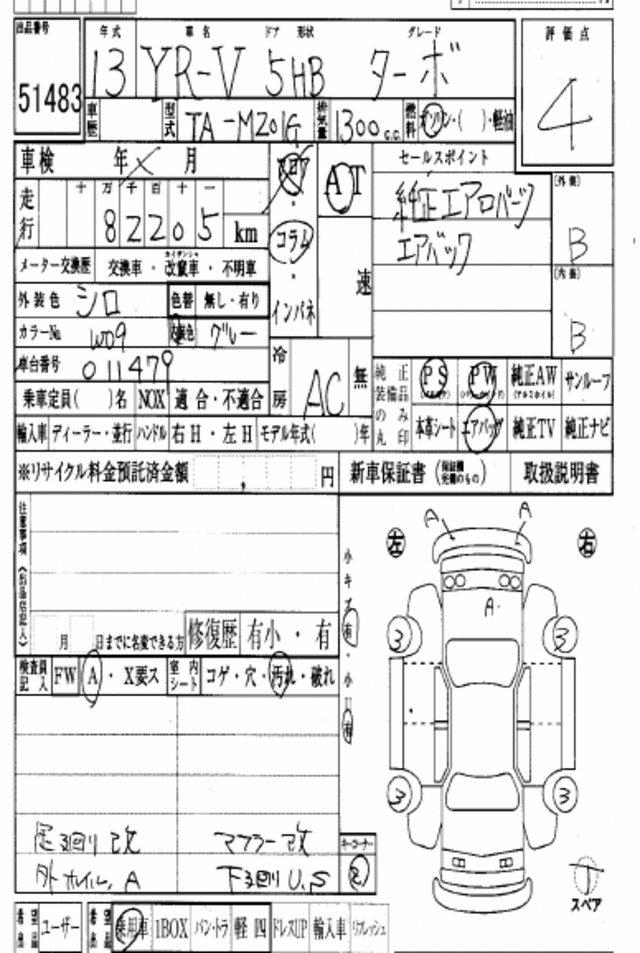 出品番号 年式 車名 ドア 形状 グレード 評価点
51483 13 YR-V 5HB ターボ 4
車歴 型式 TA-M201G 排気量 1300 c.c. 燃料 ガソリン・( )・軽油
車検 年 月 フロア AT セールスポイント
十 万 千 百 十 一
走行 82205 km コラム 純正エアロパーツ (外装) B
エアバック
メーター交換歴 交換車・改竄車・不明車 速
カイザンシャ
外装色 シロ 色替 無し・有り インパネ (内装) B
カラーNo. W09 内装色 グレー
車台番号 011479 冷房 AC 無 純正装備品のみ丸印 PS PW 純正AW サンルーフ
(アルミホイル)
乗車定員( )名 NOX 適合・不適合 本革シート エアバッグ 純正TV 純正ナビ
輸入車 ディーラー・並行 ハンドル 右H・左H モデル年式( )年
※リサイクル料金預託済金額 , 円 新車保証書 (保証書完備のもの) 取扱説明書
注意事項(出品店記入) A A
左 右
小キズ有・小凹有 A
3 3
月 日までに名変できる方 修復歴 有小・有
検査員記入 FW A・X要ス 室内シート コゲ・穴・汚れ・破れ
3 3
足廻り改 マフラー改 キーコーナー
外 ホイル.A 下廻りU.S 2 T
スペア
希望出品 ユーザー 希望出品 乗用車 1BOX バン・トラ 軽四 ドレスUP 輸入車 リフレッシュ